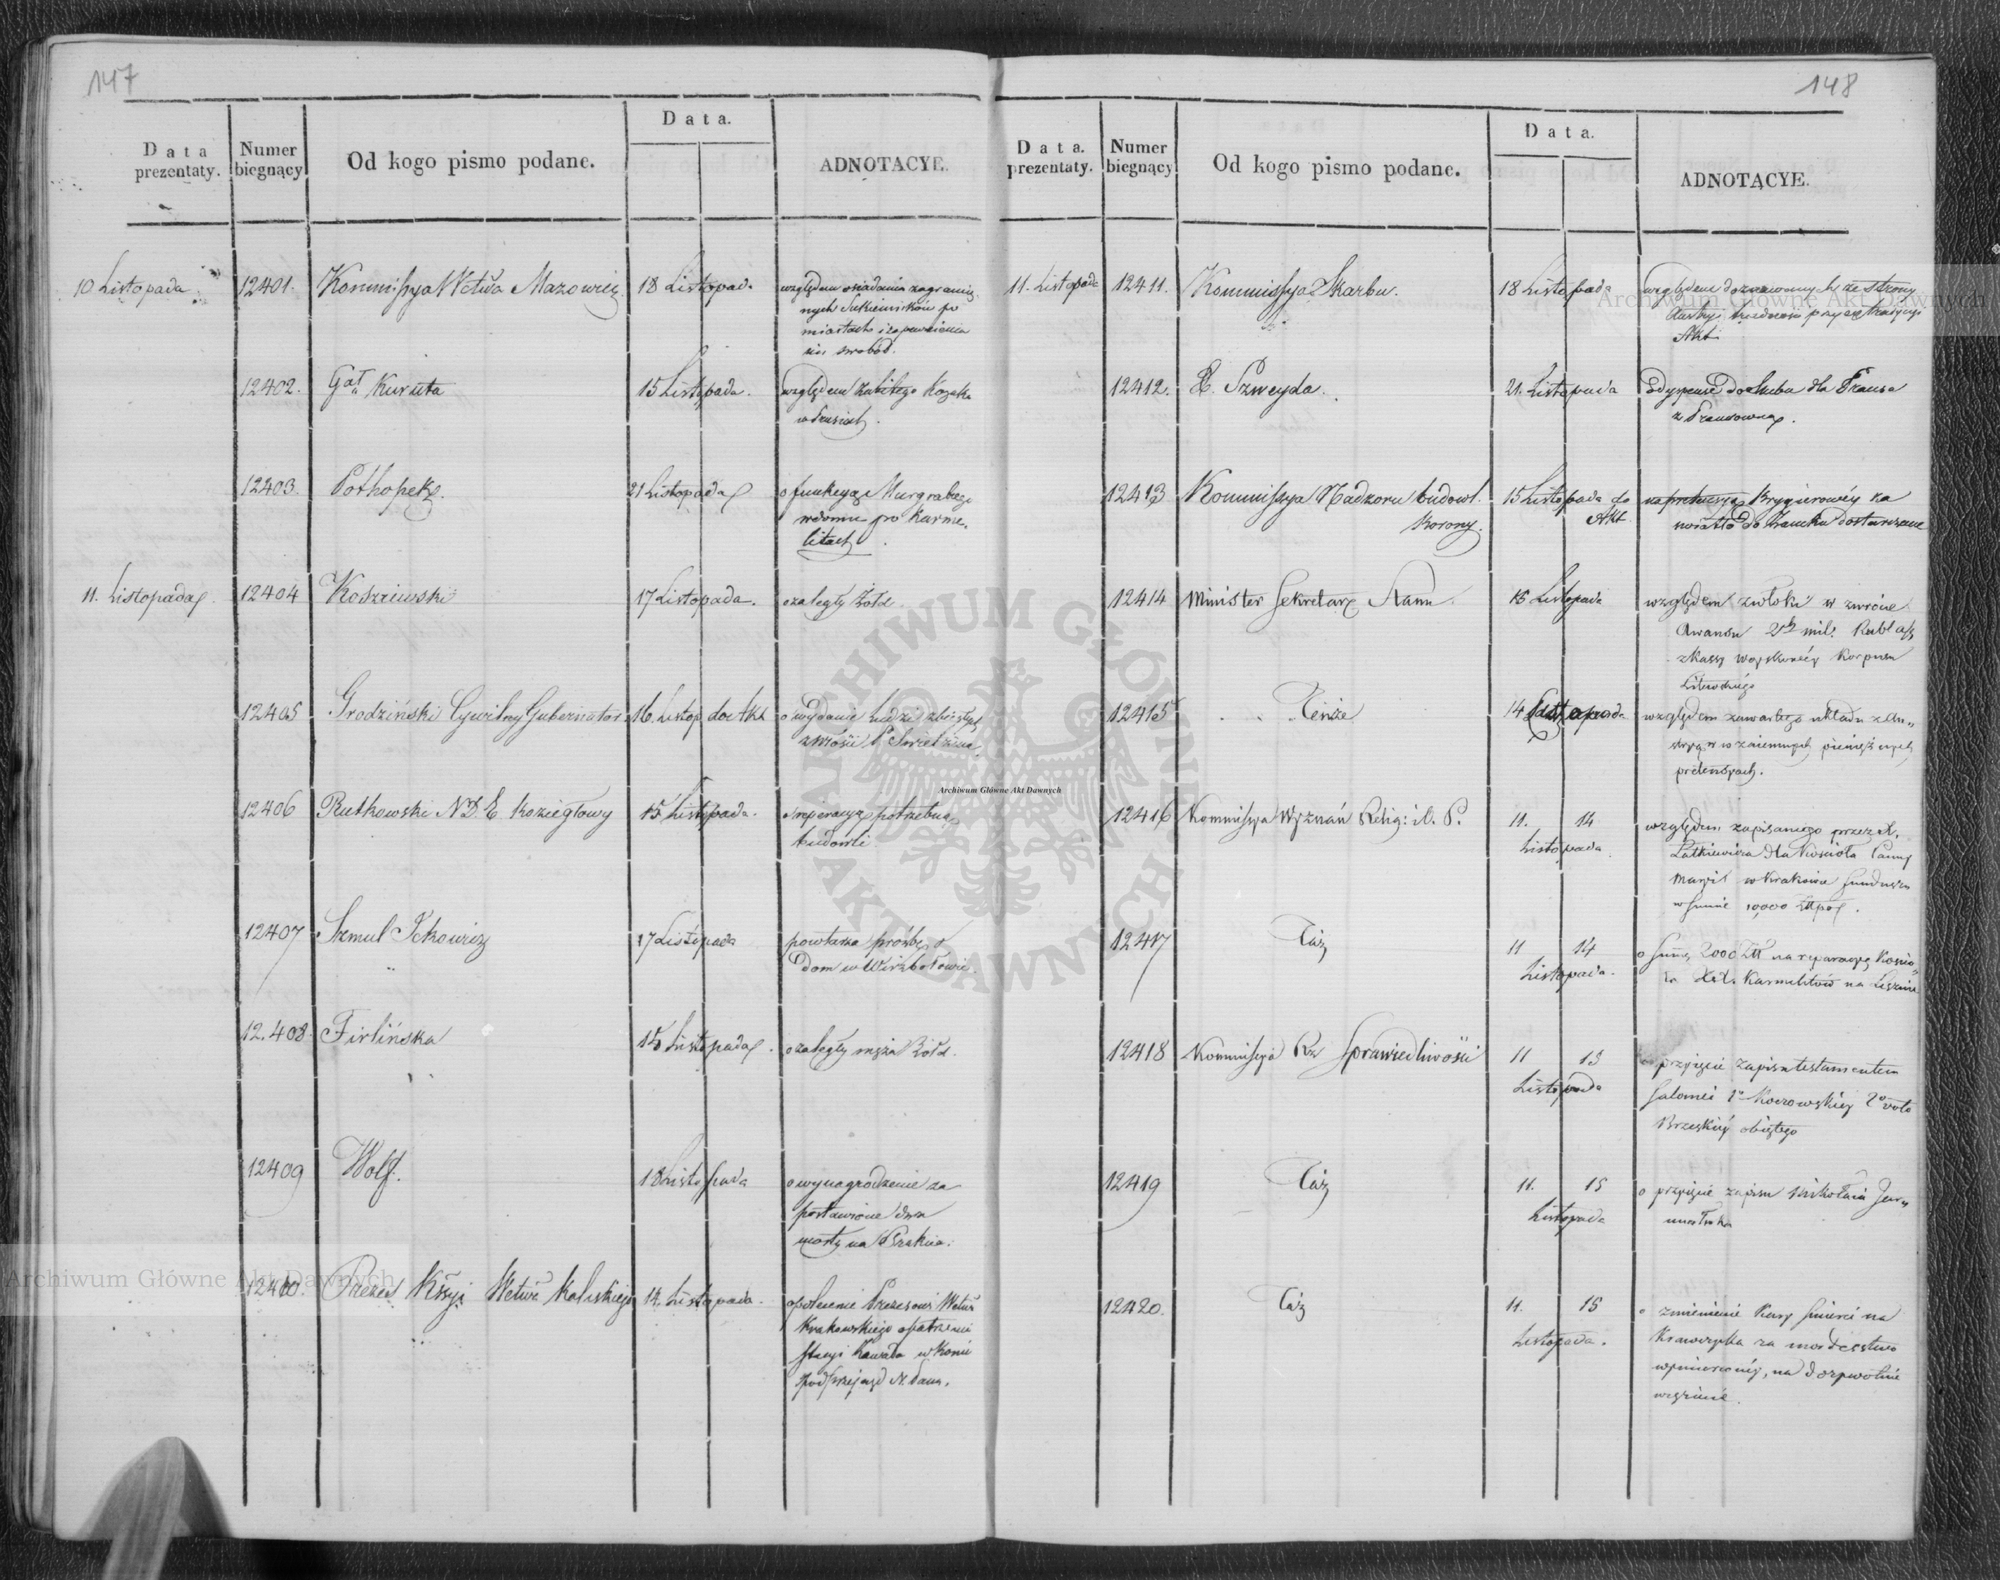 147
Data prezentaty.
Numer biegnący
Od kogo pismo podane.
Data.
ADNOTACYE.
10 Listopada
12401.
Kommissya Wctwa Mazowiec.
18 Listopad.
względem osiadania zagranicz
nych Sukienników po
miastach i zapewnienia
swobód.
12402.
Gał Kuruta
15 Listopada.
względem zabitego Kozaka
w Prusiech.
12403.
Pothopek
21 Listopada
o funkcyą Murgrabiego
w domu po Karme-
litach
11. Listopada
12404
Koszewski
17 Listopada.
o zaległy żołd.
12405
Grodziński Cywilny Gubernator
16. Listop do Akt
o wydanie ludzi zbiegłych
z włości
12406
Rutkowski N.D.E. Koziegłowy
15 Listopada.
o reperacyą potrzebną
budowli
12407
Szmul Ickowicz
17 Listopada
powtarza prośbę o
Dom w Wirzbołowie.
12.408
Firlińska
15 Listopada.
o zaległy męża żołd.
12409
Wolf.
18 Listopada
o wynagrodzenie za
postawione dwa
mosty na
12410.
Prezes Kssyi Wctwa Kaliskiego
14. Listopada.
o polecenie Prezesowi Wctwa
Krakowskiego opatrzenie
Stacyi w Konie
pod przejazd N. Pana.
148
Data. prezentaty.
Numer biegnący
Od kogo pismo podane.
Data.
ADNOTACYE.
11. Listopada
12411.
Kommissya Skarbu.
18 Listopada
względem doznawanych ze strony
Austryi trudności przy extradycyi
Akt
12412.
X. Szweyda.
21. Listopada
o dyspensę do ślubu dla Franca
z Francowną.
12413
Kommissya Nadzoru budowl.
Korony.
15 Listopada do
Akt.
Krygierowéy za
do Zamku dostarczone
12414
Minister Sekretarz Stanu.
15 Listopada
względem zwłoki w zwrocie
Awansu 2ch mil. Rubl
z kassy wojskowéy Korpusu
Litewskiego
12415
Tenże
14 Listopada
względem zawartego układu z Au-
stryą w wzaiemnych pieniężnych
pretensyach.
12416
Kommissya Wyznań Relig: i O. P.
11. 14
Listopada.
względem zapisanego przez X.
Latkiewicza dla Kościoła Panny
Maryi w Krakowie funduszu
w summie 10,000 Złtpol.
12417
Taż
11 14
Listopada.
o Summę 2000 Złł na reparacyę Kościo-
ła XX. Karmelitów na Lesznie
12418
Kommissya Rz Sprawiedliwości
11 13
Listopada
przyięcie zapisu testamentem
Salomei 1o Koczowskiéy 2o voto
Brzeskiéy obiętego
12419
Taż
11. 15
Listopada
o przyięcie zapisu Mikołaia
12420.
Taż
11. 15
Listopada.
o zmienienie Kary śmierci na
Krawczyka za morderstwo
wymierzonéy, na dożywotnie
więzienie.
Archiwum Główne Akt Dawnych
Archiwum Główne Akt Dawnych
Archiwum Główne Akt Dawnych
ARCHIWUM GŁÓWNE AKT DAWNYCH